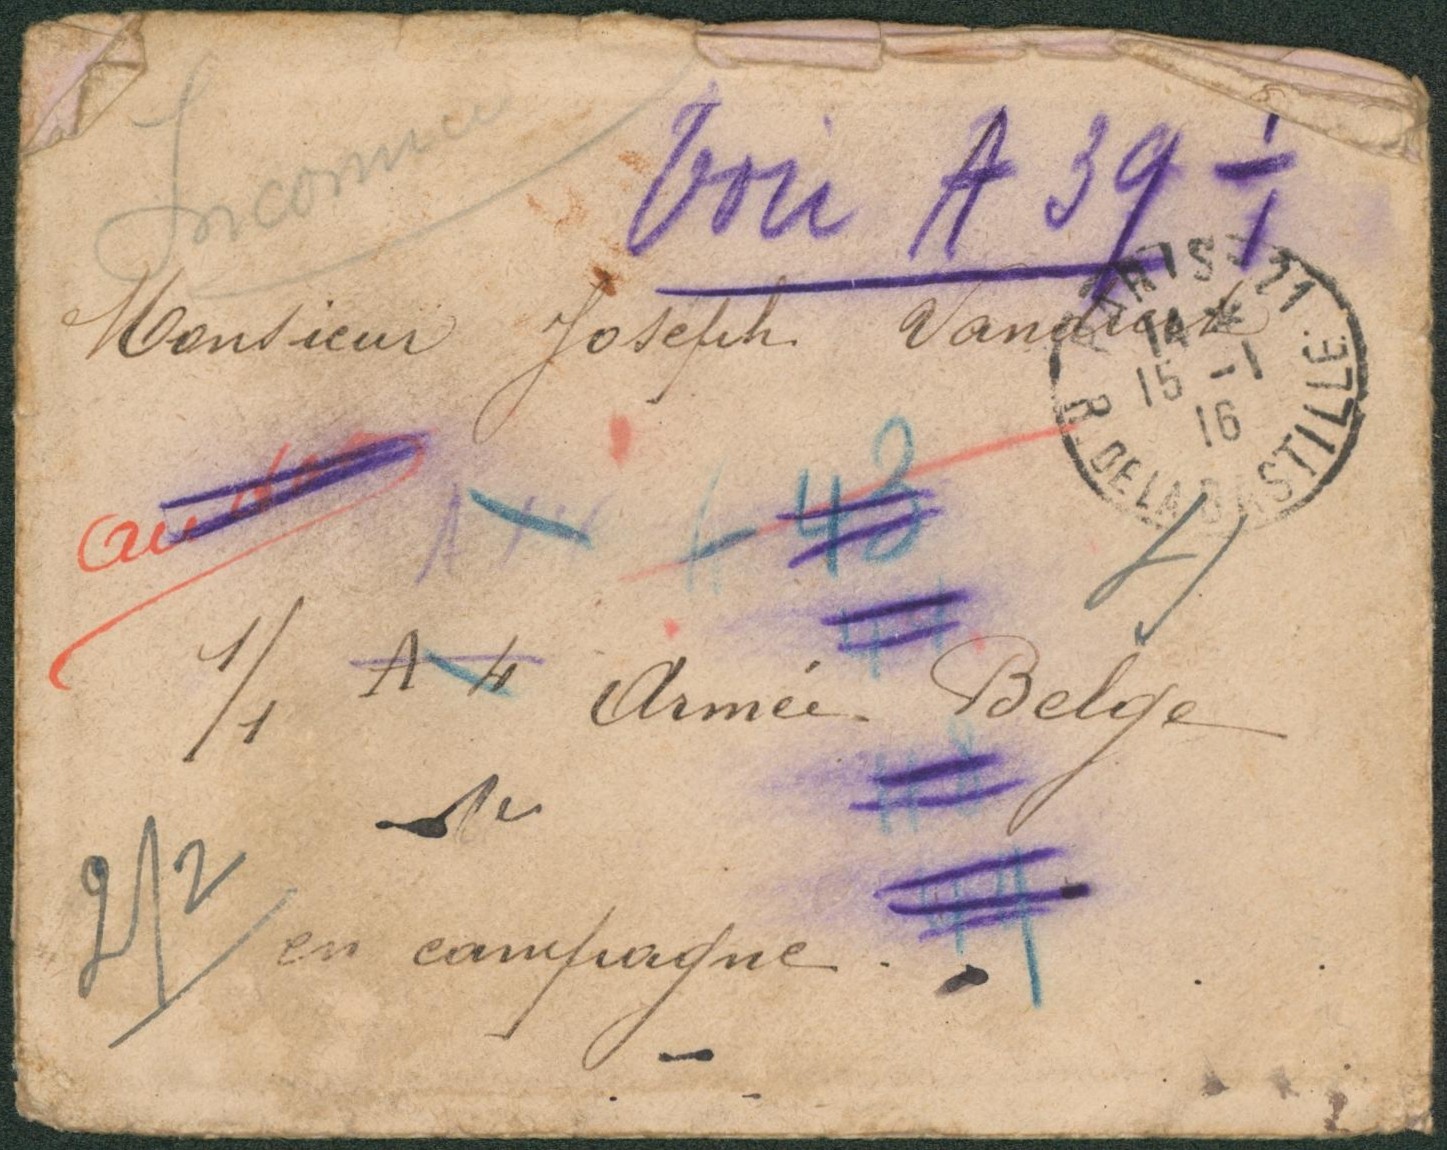 Inconnu
Voir A 39 1/1
Monsieur Joseph
PARIS - 21
14 *
15 - 1
16
R. DE LA BASTILLE
au
A
4
43
44
1/1 A 4 Armée Belge
43
44
2/2
en campagne.